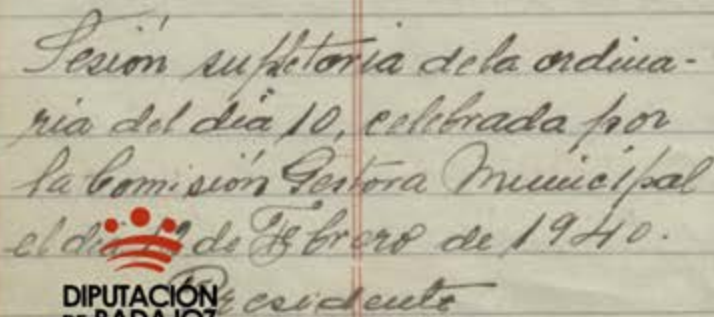 Sesión supletoria dela ordina-
ria del día 10, celebrada por
la Comisión Gestora Municipal
el día 12 de Febrero de 1940.
Presidente
DIPUTACIÓN
DE BADAJOZ